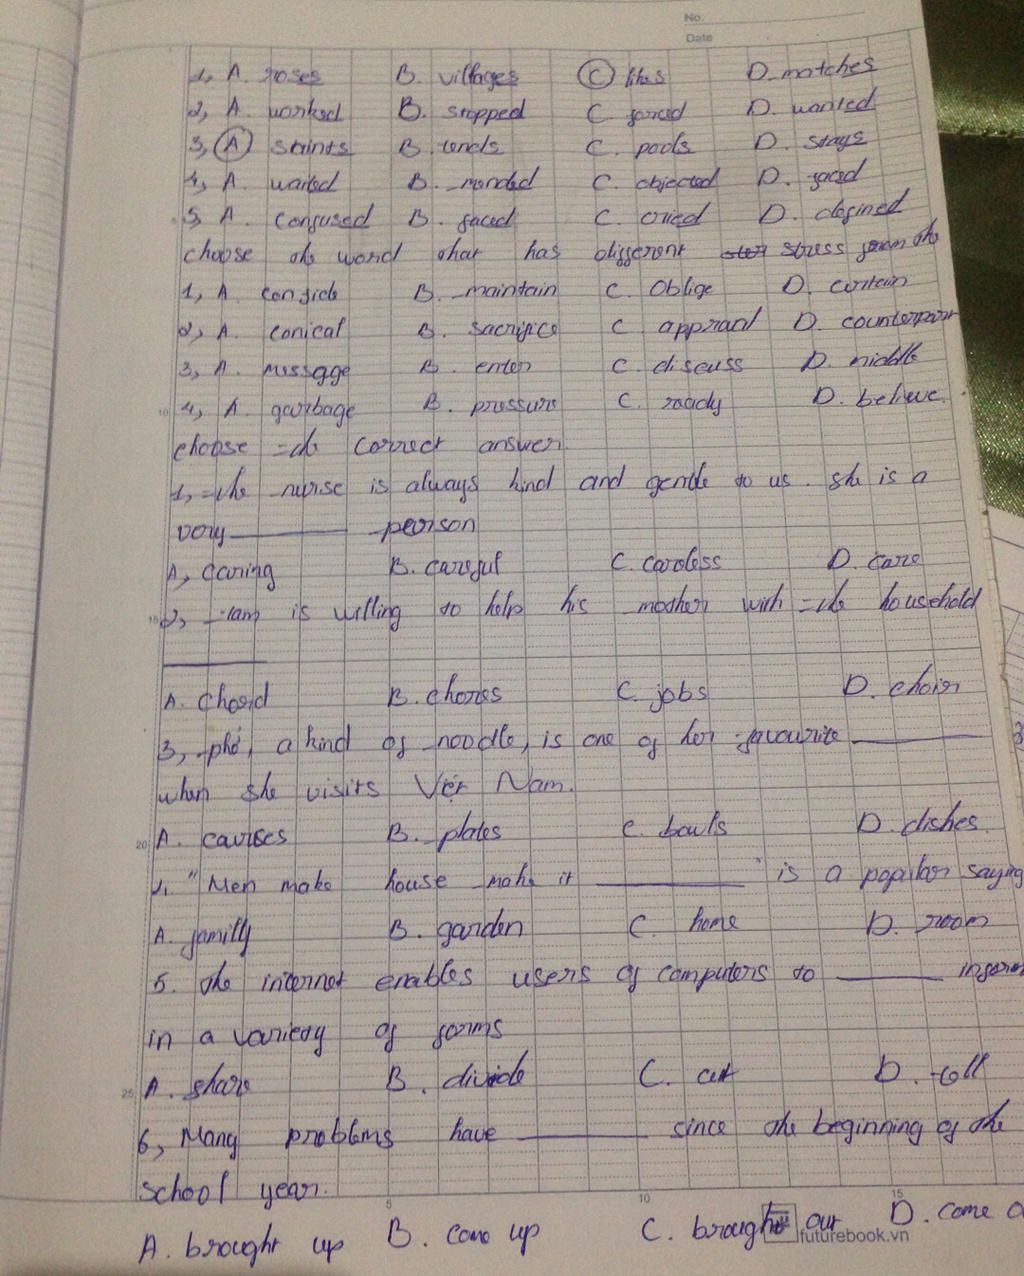 No.
Date
1, A. roses B. villages C likes D. matches
2, A. worked B. stopped C. forced D. wanted
3, A saints B. tends C. pools D. stays
4, A. waited B. mended C. objected D. faced
5, A. confused B. faced C. cried D. defined
choose the word that has different stress from the
1, A. confide B. maintain C. Oblige D. curtain
2, A. conical B. sacrifice C. apprant D. counterpart
3, A. message B. enter C. discuss D. middle
10 4, A. garbage B. pressure C. ready D. believe.
choose the correct answer.
1, the nurse is always kind and gentle to us. she is a
very ______ person
A, caring B. careful C. careless D. care
15 2, Lam is willing to help his mother with the household
______
A. chord B. chores C. jobs D. choir
3, phở, a kind of noodle, is one of her favourite ______
when she visits Việt Nam.
20 A. caurses B. plates C. bowls D. dishes.
4. "Men make house make it ______" is a popular saying
A. family B. garden C. home D. room
5. the internet enables users of computers to ______ inform
in a variety of forms
25 A. share B. divide C. cut D. tell
6, Many problems have ______ since the beginning of the
school year.
5 10 15
A. brought up B. come up C. brought out D. come o
futurebook.vn